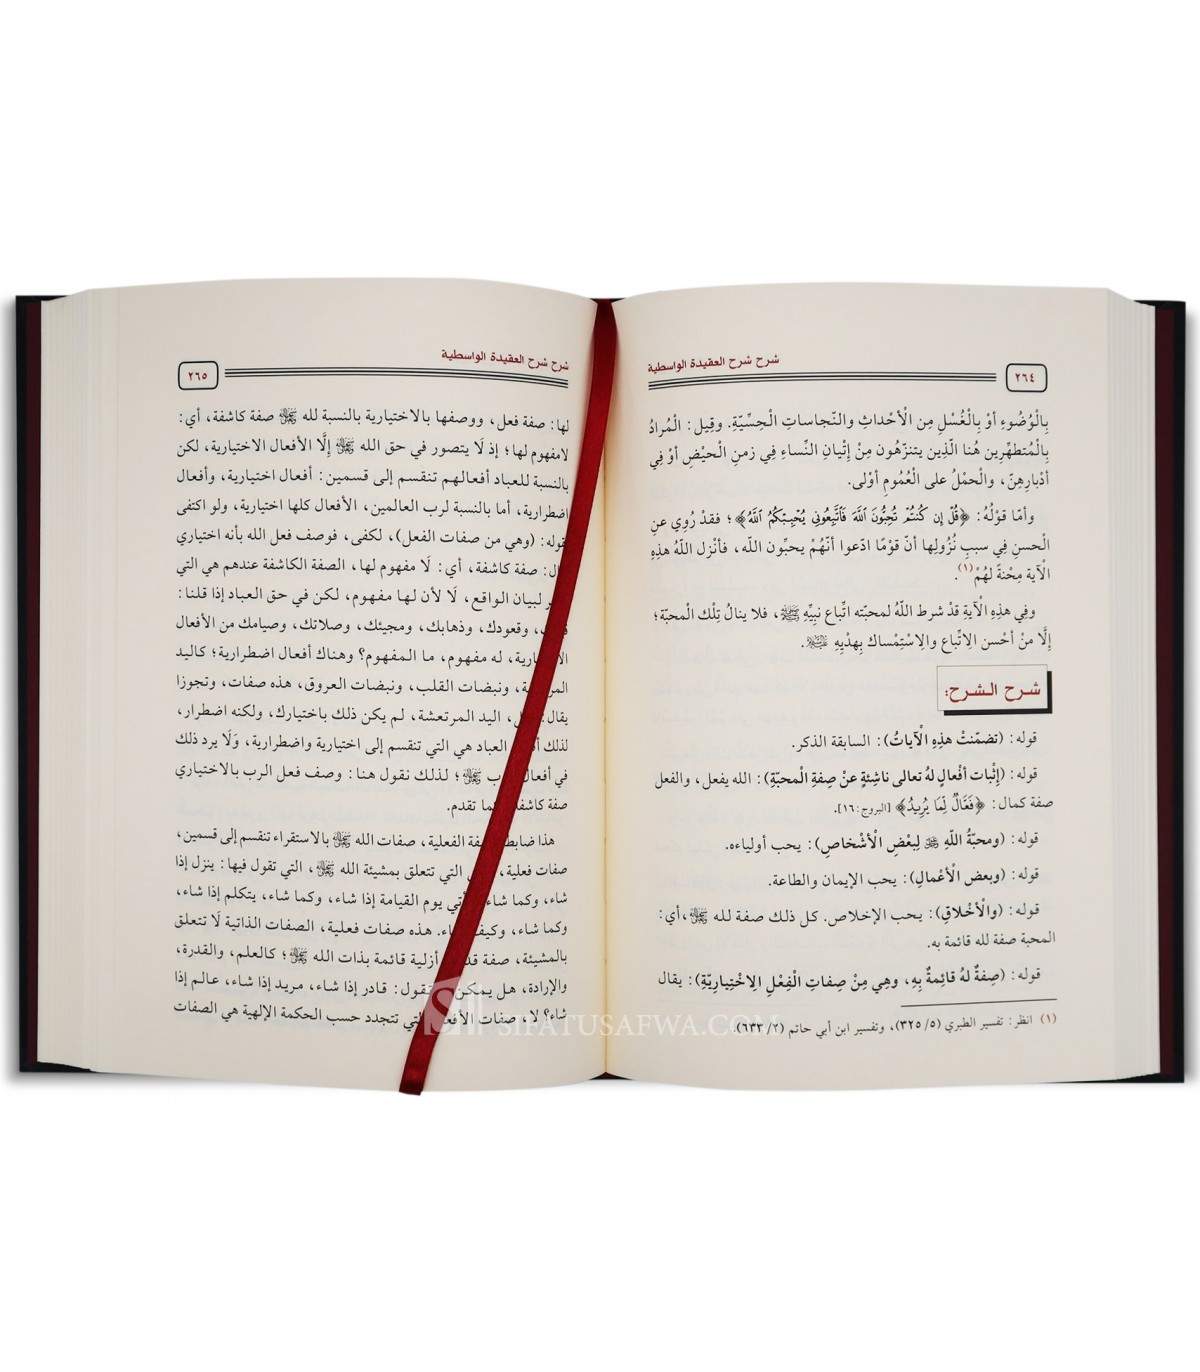 شرح شرح العقيدة الواسطية
٢٦٤
بِالْوُضُوءِ أوْ بِالْغُسْلِ مِن الْأحْداثِ والنّجاساتِ الْحِسِّيّةِ. وقِيل: الْمُرادُ
بِالْمُتطهِّرِين هُنا الّذِين يتنزّهُون مِنْ إِتْيانِ النِّساءِ فِي زمنِ الْحيْضِ أوْ فِي
أدْبارِهِنّ، والْحمْلُ على الْعُمُومِ أوْلى.
وأمّا قوْلُهُ: ﴿قُلْ إِن كُنتُمْ تُحِبُّونَ ٱللَّهَ فَٱتَّبِعُونِي يُحْبِبْكُمُ ٱللَّهُ﴾؛ فقدْ رُوِي عنِ
الْحسنِ فِي سببِ نُزُولِها أنّ قوْمًا ادّعوا أنّهُمْ يحبِّون اللّه، فأنْزل اللّهُ هذِهِ
الْآية مِحْنةً لهُمْ(١).
وفِي هذِهِ الْآيةِ قدْ شرط اللّهُ لمحبّته اتِّباع نبِيِّهِ ﷺ، فلا ينالُ تِلْك الْمحبّة؛
إِلّا منْ أحْسن الِاتِّباع والِاسْتِمْساك بِهدْيِهِ ﷺ.
شرح الشرح:
قوله: (تضمّنتْ هذِهِ الْآياتُ): السابقة الذكر.
قوله: (إِثْبات أفْعالٍ لهُ تعالى ناشِئةٍ عنْ صِفةِ الْمحبّةِ): الله يفعل، والفعل
صفة كمال: ﴿فَعَّالٌ لِّمَا يُرِيدُ﴾ [البروج: ١٦].
قوله: (ومحبّةُ اللّهِ ﷻ لِبعْضِ الْأشْخاصِ): يحب أولياءه.
قوله: (وبعض الْأعْمالِ): يحب الإيمان والطاعة.
قوله: (والْأخْلاقِ): يحب الإخلاص. كل ذلك صفة لله ﷻ، أي:
المحبة صفة لله قائمة به.
قوله: (صِفةٌ لهُ قائِمةٌ بِهِ، وهِي مِنْ صِفاتِ الْفِعْلِ الِاخْتِيارِيّةِ): يقال
(١) انظر: تفسير الطبري (٥/ ٣٢٥)، وتفسير ابن أبي حاتم (٢/ ٦٣٣).
شرح شرح العقيدة الواسطية
٢٦٥
لها: صفة فعل، ووصفها بالاختيارية بالنسبة لله ﷻ صفة كاشفة، أي:
لامفهوم لها؛ إذ لَا يتصور في حق الله ﷻ إلَّا الأفعال الاختيارية، لكن
بالنسبة للعباد أفعالهم تنقسم إلى قسمين: أفعال اختيارية، وأفعال
اضطرارية، أما بالنسبة لرب العالمين، الأفعال كلها اختيارية، ولو اكتفى
قوله: (وهي من صفات الفعل)، لكفى، فوصف فعل الله بأنه اختياري
صفة كاشفة، أي: لَا مفهوم لها، الصفة الكاشفة عندهم هي التي
لبيان الواقع، لَا لأن لها مفهوم، لكن في حق العباد إذا قلنا:
وقعودك، وذهابك، ومجيئك، وصلاتك، وصيامك من الأفعال
له مفهوم، ما المفهوم؟ وهناك أفعال اضطرارية؛ كاليد
ونبضات القلب، ونبضات العروق، هذه صفات، وتجوزا
يقال: اليد المرتعشة، لم يكن ذلك باختيارك، ولكنه اضطرار،
لذلك العباد هي التي تنقسم إلى اختيارية واضطرارية، وَلَا يرد ذلك
في أفعال ﷻ؛ لذلك نقول هنا: وصف فعل الرب بالاختياري
صفة كاشفة تقدم.
هذا ضابط الفعلية، صفات الله ﷻ بالاستقراء تنقسم إلى قسمين،
صفات فعلية، التي تتعلق بمشيئة الله ﷻ، التي تقول فيها: ينزل إذا
شاء، وكما شاء يوم القيامة إذا شاء، وكما شاء، يتكلم إذا شاء،
وكما شاء، هذه صفات فعلية، الصفات الذاتية لَا تتعلق
بالمشيئة، صفة أزلية قائمة بذات الله ﷻ؛ كالعلم، والقدرة،
والإرادة، هل يمكن تقول: قادر إذا شاء، مريد إذا شاء، عالم إذا
شاء؟ لا، صفات تتجدد حسب الحكمة الإلهية هي الصفات
SIFATUSAFWA.COM